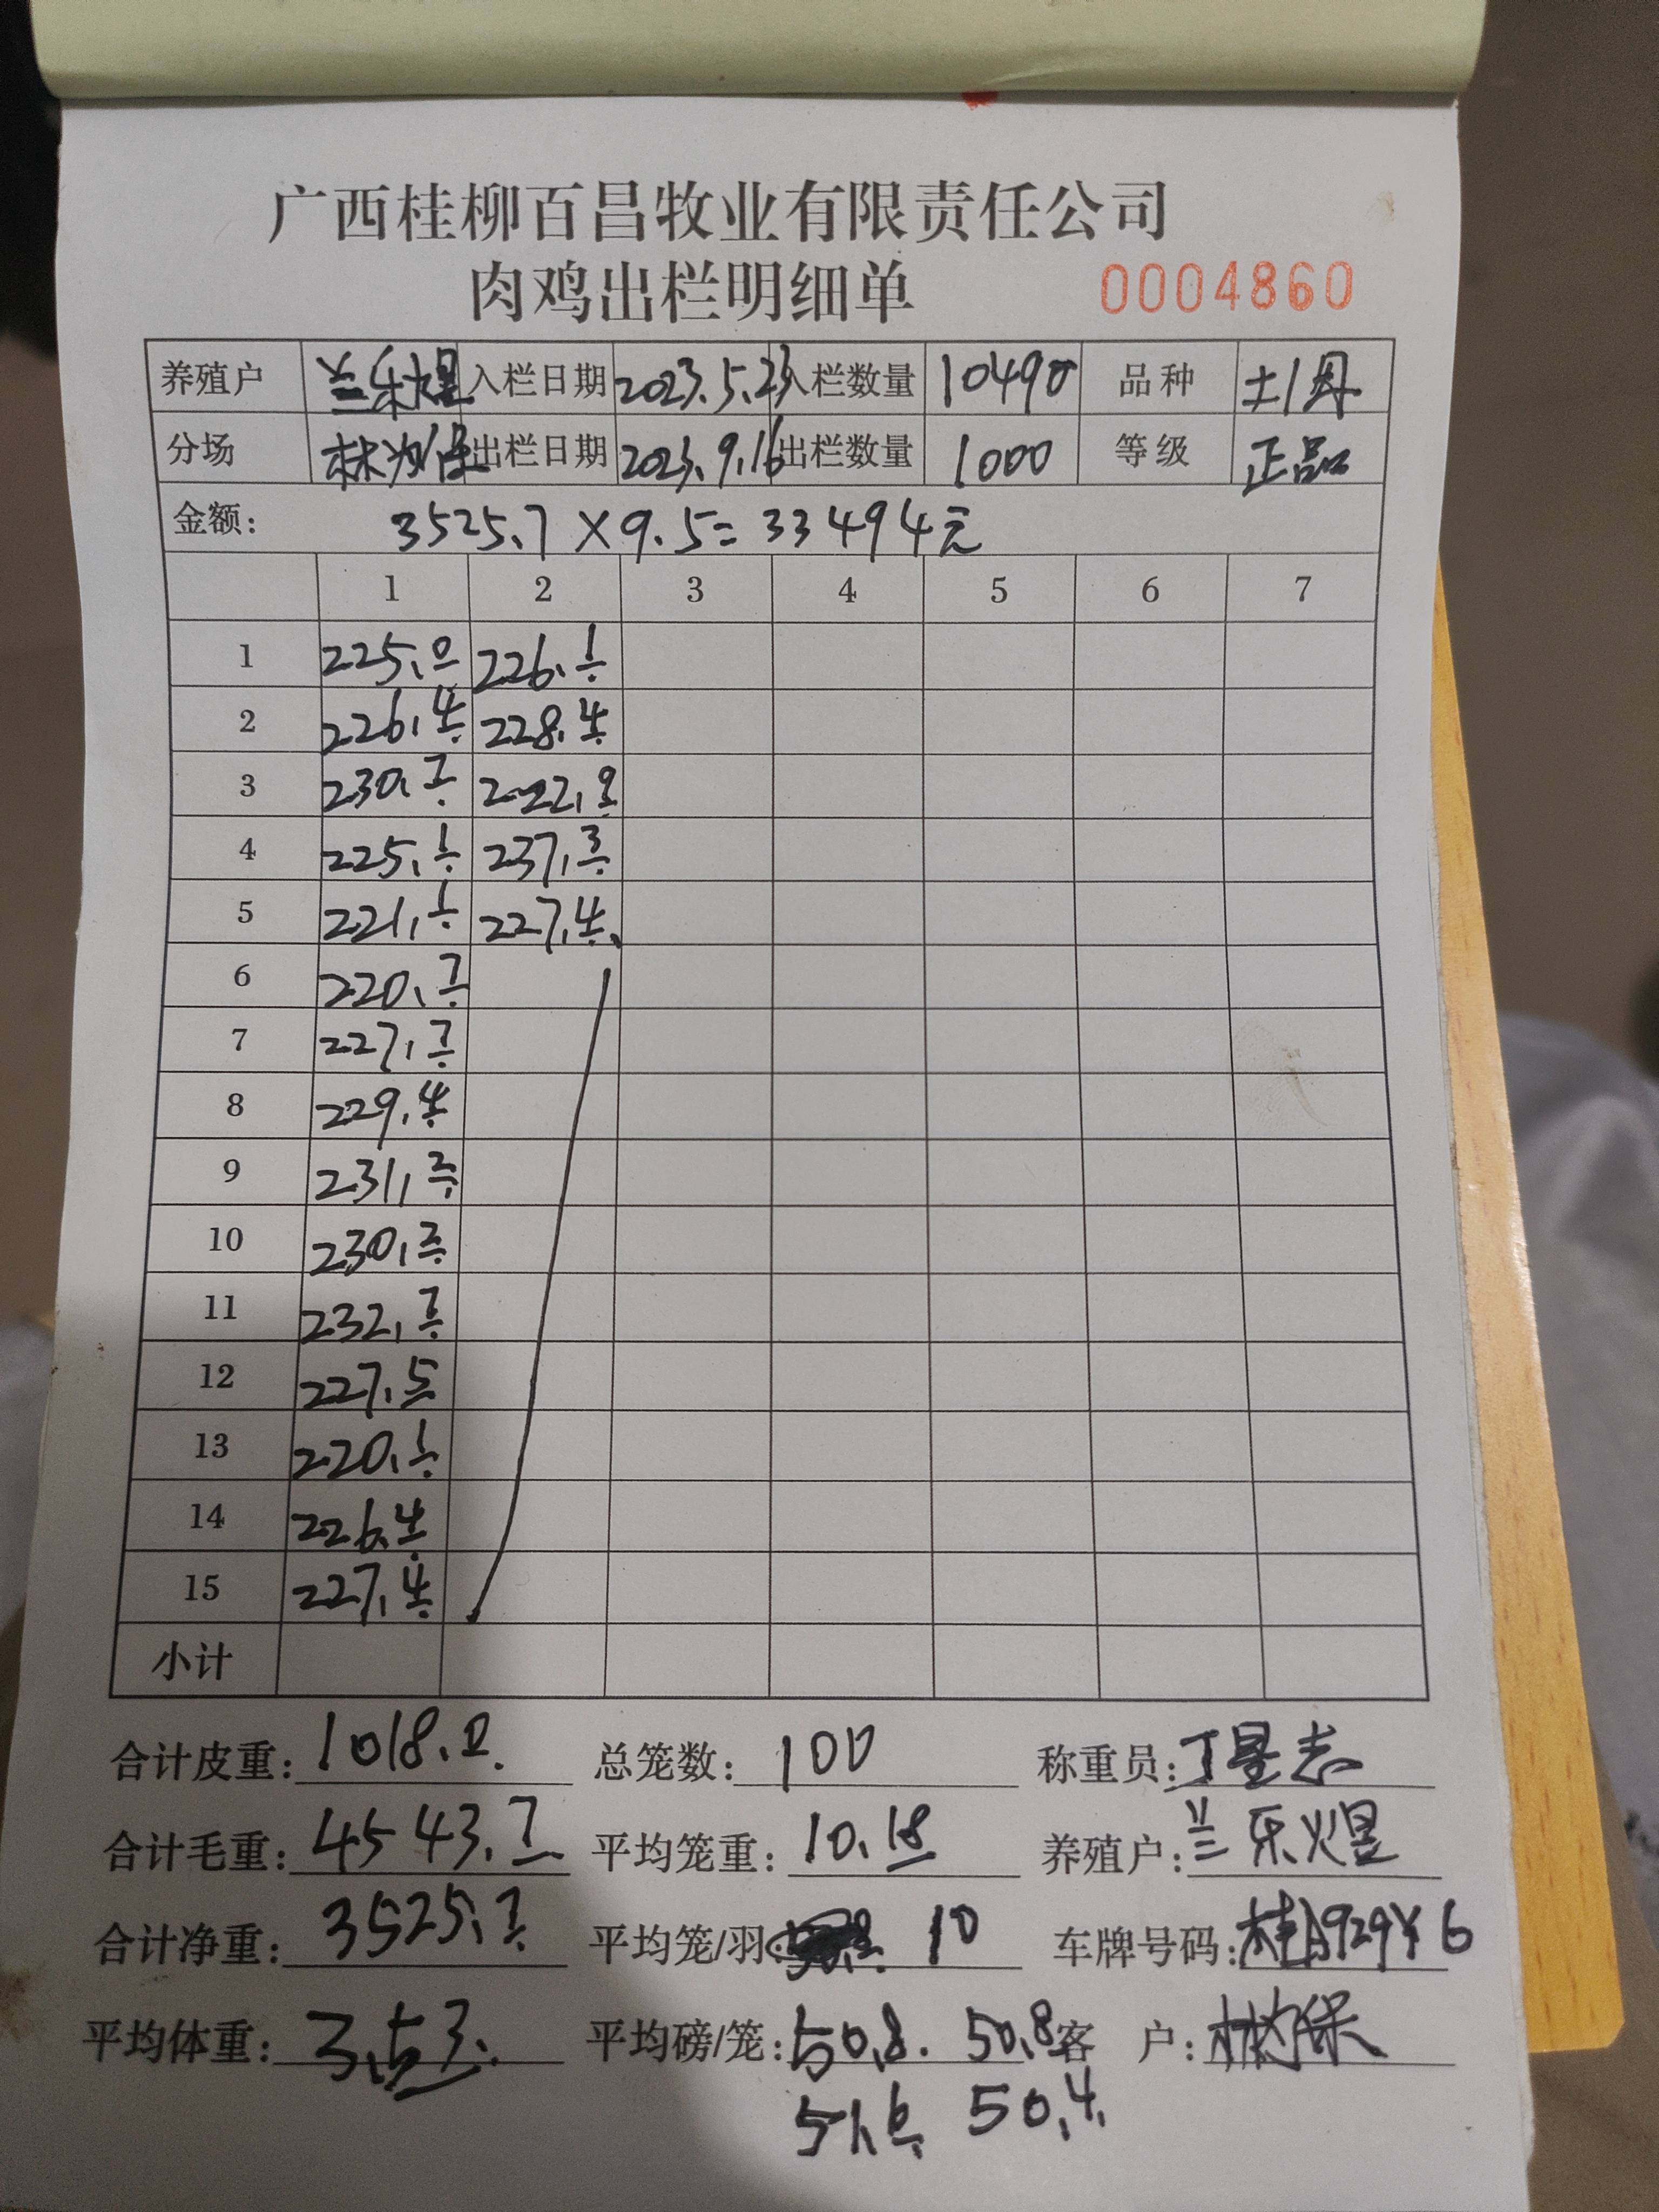 广西桂柳百昌牧业有限责任公司
肉鸡出栏明细单 0004860
养殖户 兰乐煌 入栏日期 2023.5.23 入栏数量 10490 品种 土1母
分场 出栏日期 2023.9.16 出栏数量 1000 等级 正品
金额: 3525.7×9.5=33494元
1 2 3 4 5 6 7
1 225.0 226.1
2 226.4 228.4
3 230.7 222.9
4 225.1 237.3
5 221.1 227.4
6 220.7
7 227.7
8 229.4
9 231.3
10 230.3
11 232.7
12 227.5
13 220.1
14 226.4
15 227.4
小计
合计皮重: 1018.0 总笼数: 100 称重员: 丁星志
合计毛重: 4543.7 平均笼重: 10.18 养殖户: 兰乐煌
合计净重: 3525.7 平均笼/羽: 10 车牌号码: 桂A929Y6
平均体重: 3.53 平均磅/笼: 50.8. 50.8 客 户:
51.6 50.4